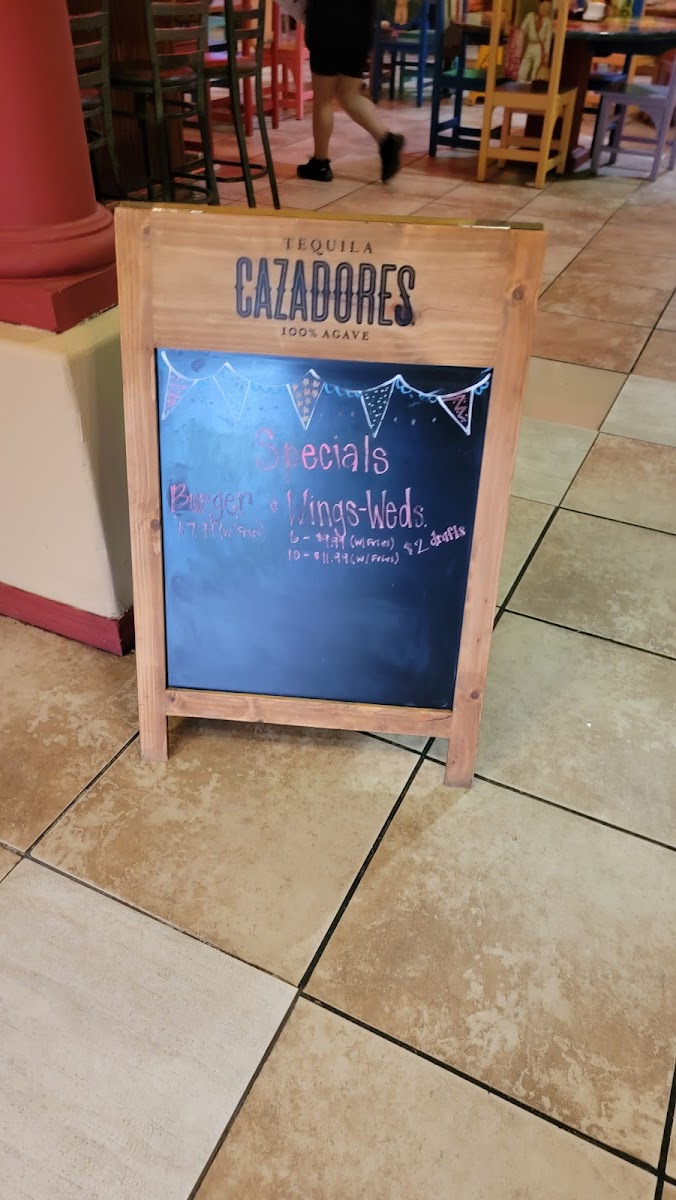 TEQUILA
CAZADORES
100% AGAVE
Specials
Burger & Wings-Weds.
$7.99 (w/Fries) 6 - $9.99 (w/Fries) $2 drafts
10 - $11.99 (w/Fries)